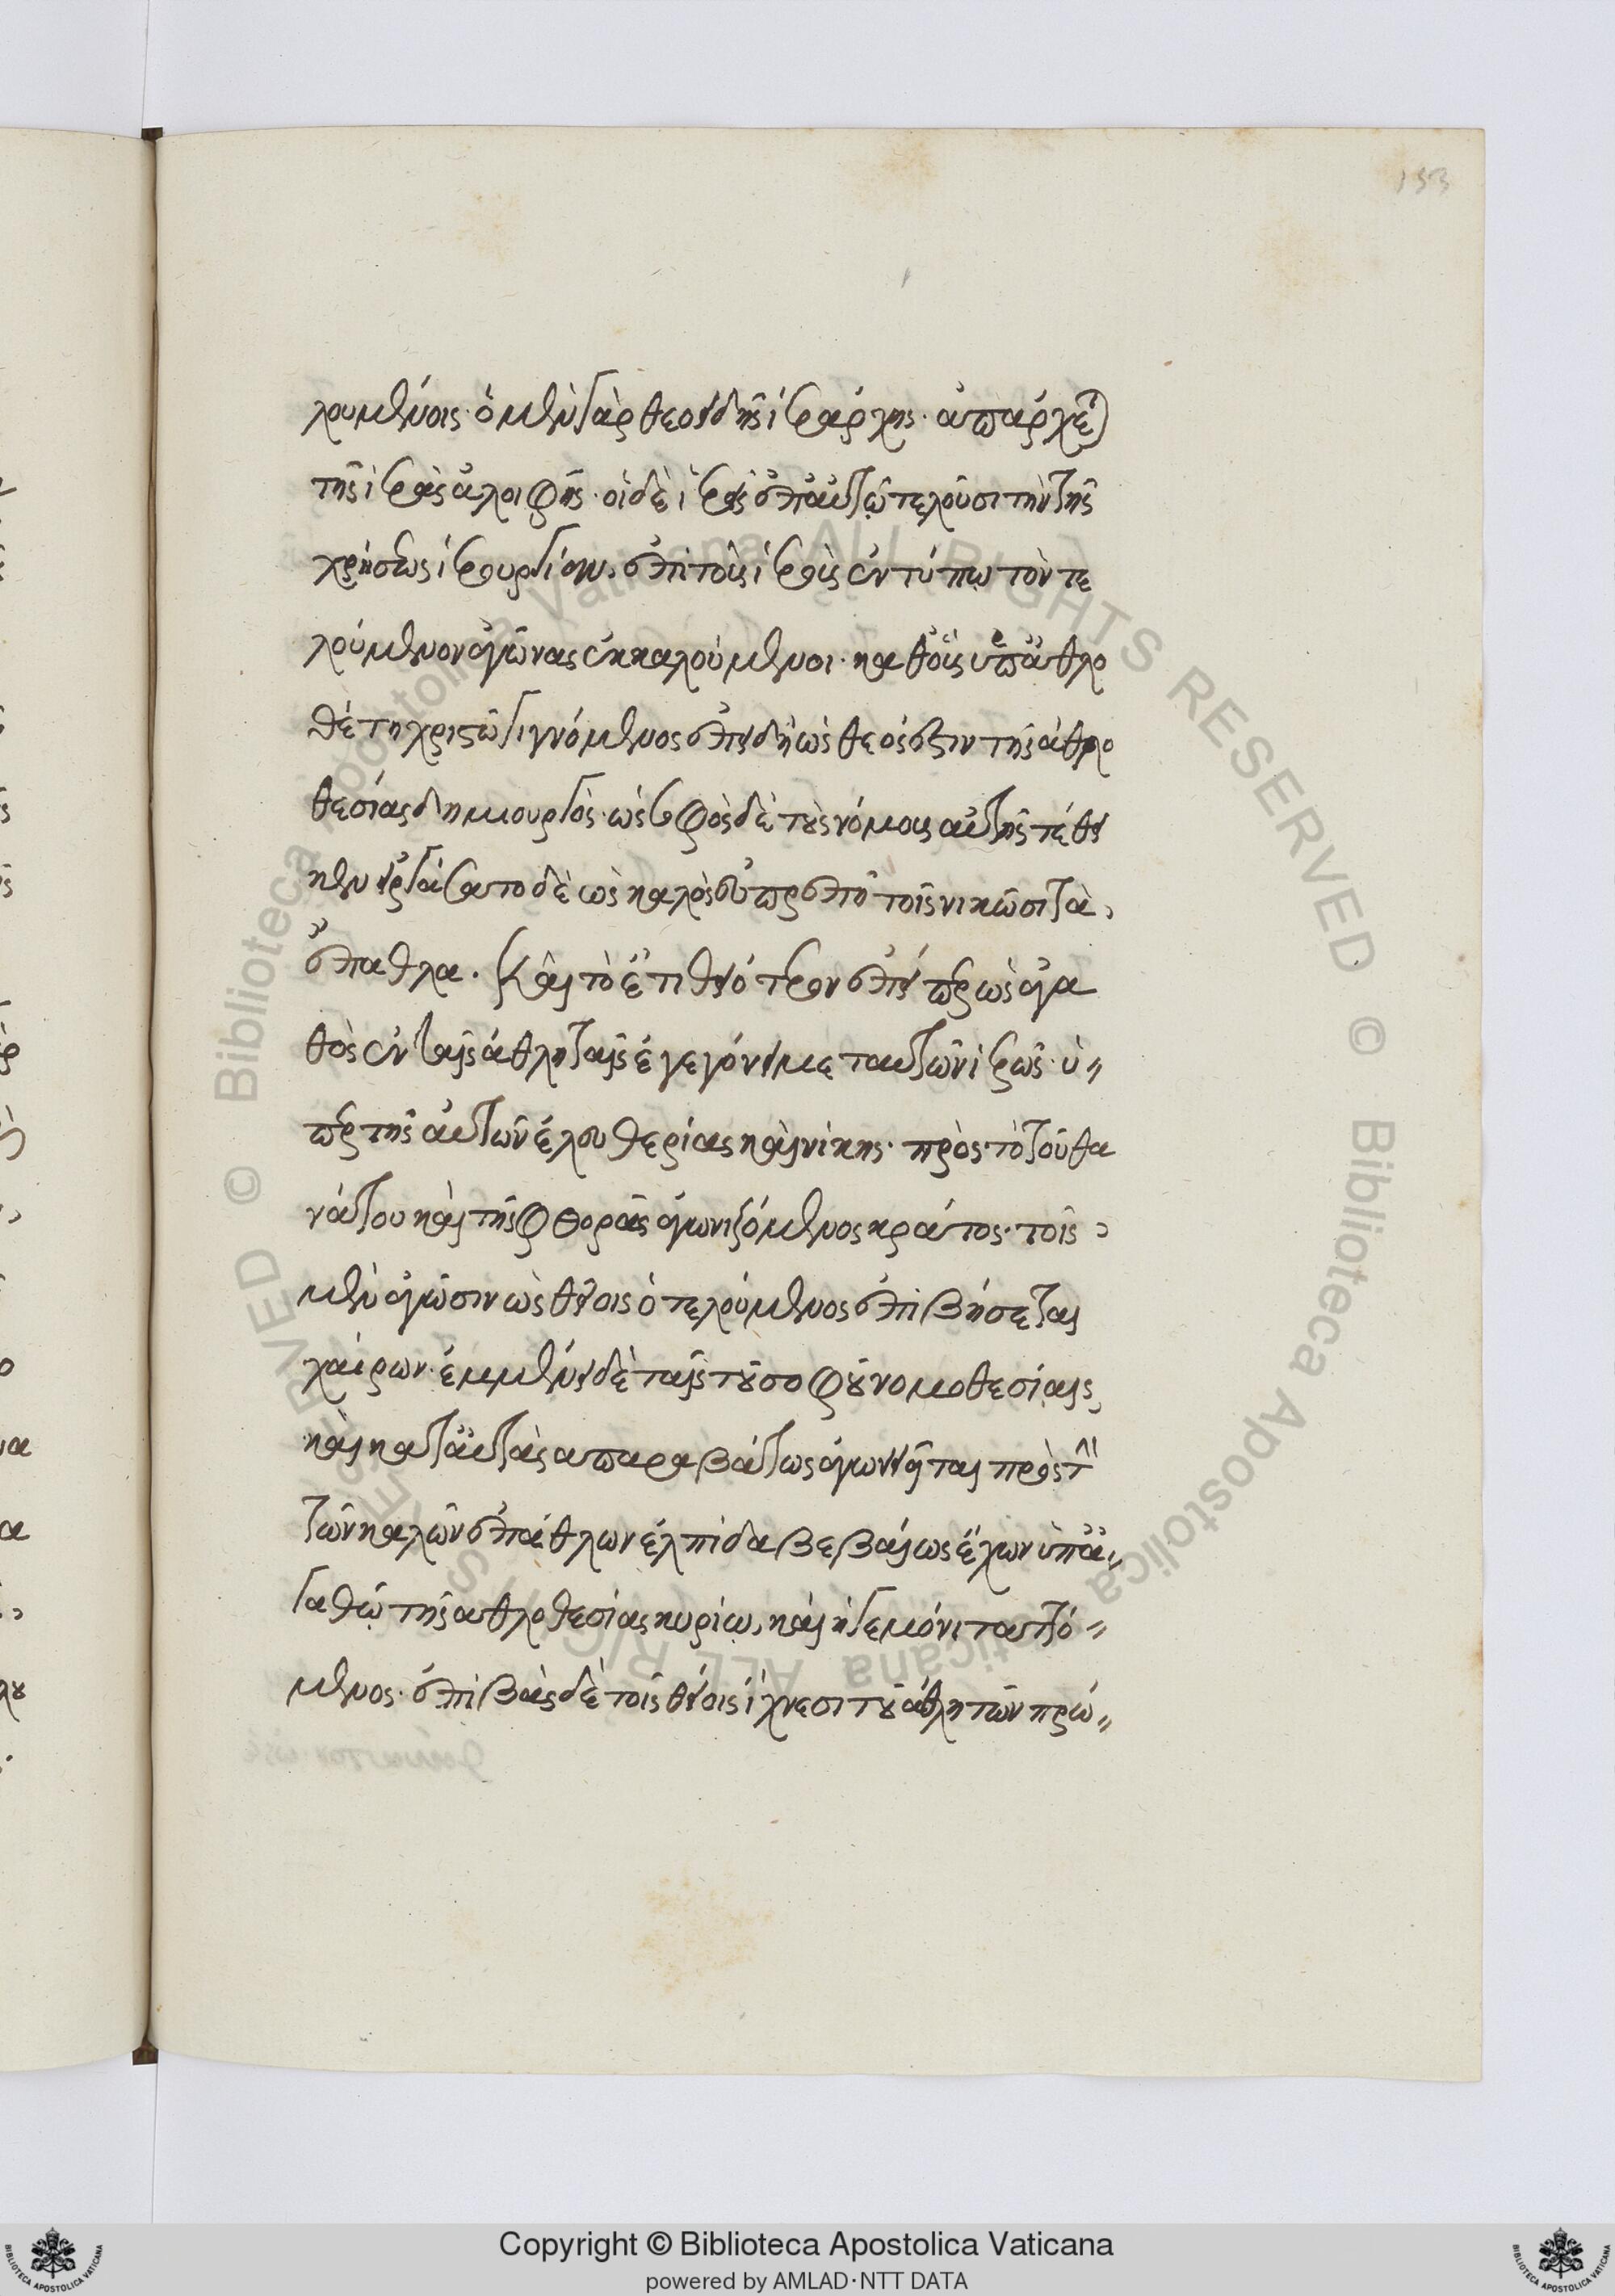 133
λουμένοις· ὁ μὲν γὰρ θεοειδὴς ἱεράρχης· ἀπάρχεται
τῆς ἱερᾶς ἀλοιφῆς· οἱ δὲ ἱερεῖς ὑπ' αὐτῷ τελοῦσι τὴν τῆς
χρίσεως ἱερουργίαν, ἐπὶ τοὺς ἱεροὺς ἐν τύπῳ τὸν τε
λούμενον ἀγῶνας ἐκκαλούμενοι· καθ' οὓς ὑπ' ἀθλο
θέτῃ χριστῷ γιγνόμενος ἐπειδὴ ὡς θεός ἐστιν τῆς ἀθλο
θεσίας δημιουργὸς· ὡς σοφὸς δὲ τοὺς νόμους αὐτῆς τέθει
κεν εἰργάσατο δὲ ὡς καλὸς εὐπρεπῆ τοῖς νικῶσι τὰ
ἔπαθλα. Καὶ τὸ ἔτι θειότερον ἐπείπερ ὡς ἀγα
θὸς ἐν ταῖς ἀθληταῖς ἐγεγόνει μετ' αὐτῶν ἱερῶς· ὑ
πὲρ τῆς αὐτῶν ἐλευθερίας καὶ νίκης· πρὸς τὸ τοῦ θα
νάτου καὶ τῆς φθορᾶς ἀγωνιζόμενος κράτος· τοῖς
μὲν ἀγῶσιν ὡς θείοις ὁ τελούμενος ἐπιβήσεται
χαίρων· ἐμμένει δὲ ταῖς τοῦ σοφοῦ νομοθεσίαις
καὶ κατ' αὐτὰς ἀπαραβάτως ἀγωνιεῖται πρὸς τὴν
τῶν καλῶν ἐπάθλων ἐλπίδα βεβαίως ἔχων ὑπ' ἀ
γαθῷ τῆς ἀθλοθεσίας κυρίῳ, καὶ ἡγεμόνι ταττό
μενος· ἐπιβὰς δὲ τοῖς θείοις ἴχνεσι τοῦ ἀθλητῶν πρώ
Copyright © Biblioteca Apostolica Vaticana
powered by AMLAD·NTT DATA